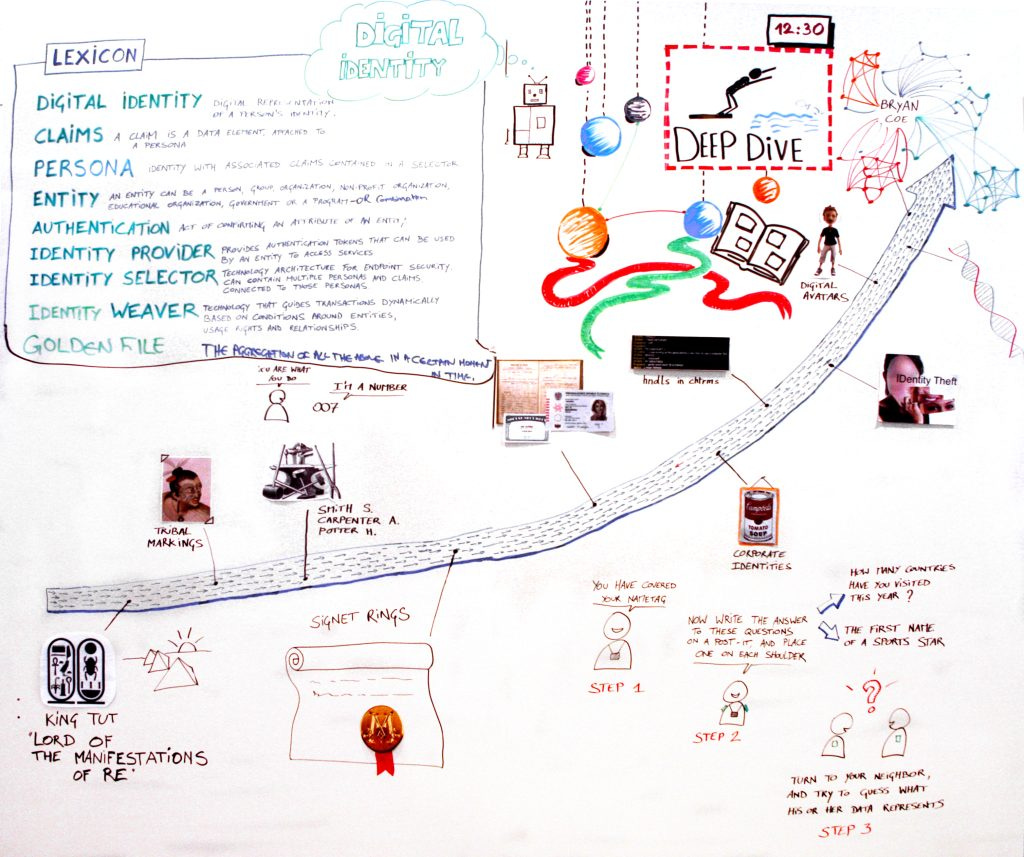 LEXICON
DIGITAL IDENTITY
DIGITAL IDENTITY DIGITAL REPRESENTATION
OF A PERSON'S IDENTITY.
CLAIMS A CLAIM IS A DATA ELEMENT, ATTACHED TO
A PERSONA
PERSONA IDENTITY WITH ASSOCIATED CLAIMS CONTAINED IN A SELECTOR
ENTITY AN ENTITY CAN BE A PERSON, GROUP, ORGANIZATION, NON-PROFIT ORGANIZATION,
EDUCATIONAL ORGANIZATION, GOVERNMENT OR A PROGRAM - OR Combination
AUTHENTICATION ACT OF CONFIRMING AN ATTRIBUTE OF AN ENTITY;
IDENTITY PROVIDER PROVIDES AUTHENTICATION TOKENS THAT CAN BE USED
BY AN ENTITY TO ACCESS SERVICES
IDENTITY SELECTOR TECHNOLOGY ARCHITECTURE FOR ENDPOINT SECURITY.
CAN CONTAIN MULTIPLE PERSONAS AND CLAIMS
CONNECTED TO THOSE PERSONAS
IDENTITY WEAVER TECHNOLOGY THAT GUIDES TRANSACTIONS DYNAMICALLY
BASED ON CONDITIONS AROUND ENTITIES,
USAGE RIGHTS AND RELATIONSHIPS.
GOLDEN FILE THE AGGREGATION OF ALL THE ABOVE IN A CERTAIN MOMENT
IN TIME.
12:30
DEEP DIVE
BRYAN
COE
DIGITAL
AVATARS
IDentity Theft
hndls in chtrms
SOCIAL SECURITY
YOU ARE WHAT
YOU DO
I'M A NUMBER
007
TRIBAL
MARKINGS
SMITH S.
CARPENTER A.
POTTER H.
Campbell's
TOMATO
SOUP
CORPORATE
IDENTITIES
SIGNET RINGS
KING TUT
"LORD OF
THE MANIFESTATIONS
OF RE"
YOU HAVE COVERED
YOUR NAMETAG
STEP 1
NOW WRITE THE ANSWER
TO THESE QUESTIONS
ON A POST-IT, AND PLACE
ONE ON EACH SHOULDER
STEP 2
HOW MANY COUNTRIES
HAVE YOU VISITED
THIS YEAR?
THE FIRST NAME
OF A SPORTS STAR
?
TURN TO YOUR NEIGHBOR,
AND TRY TO GUESS WHAT
HIS OR HER DATA REPRESENTS
STEP 3